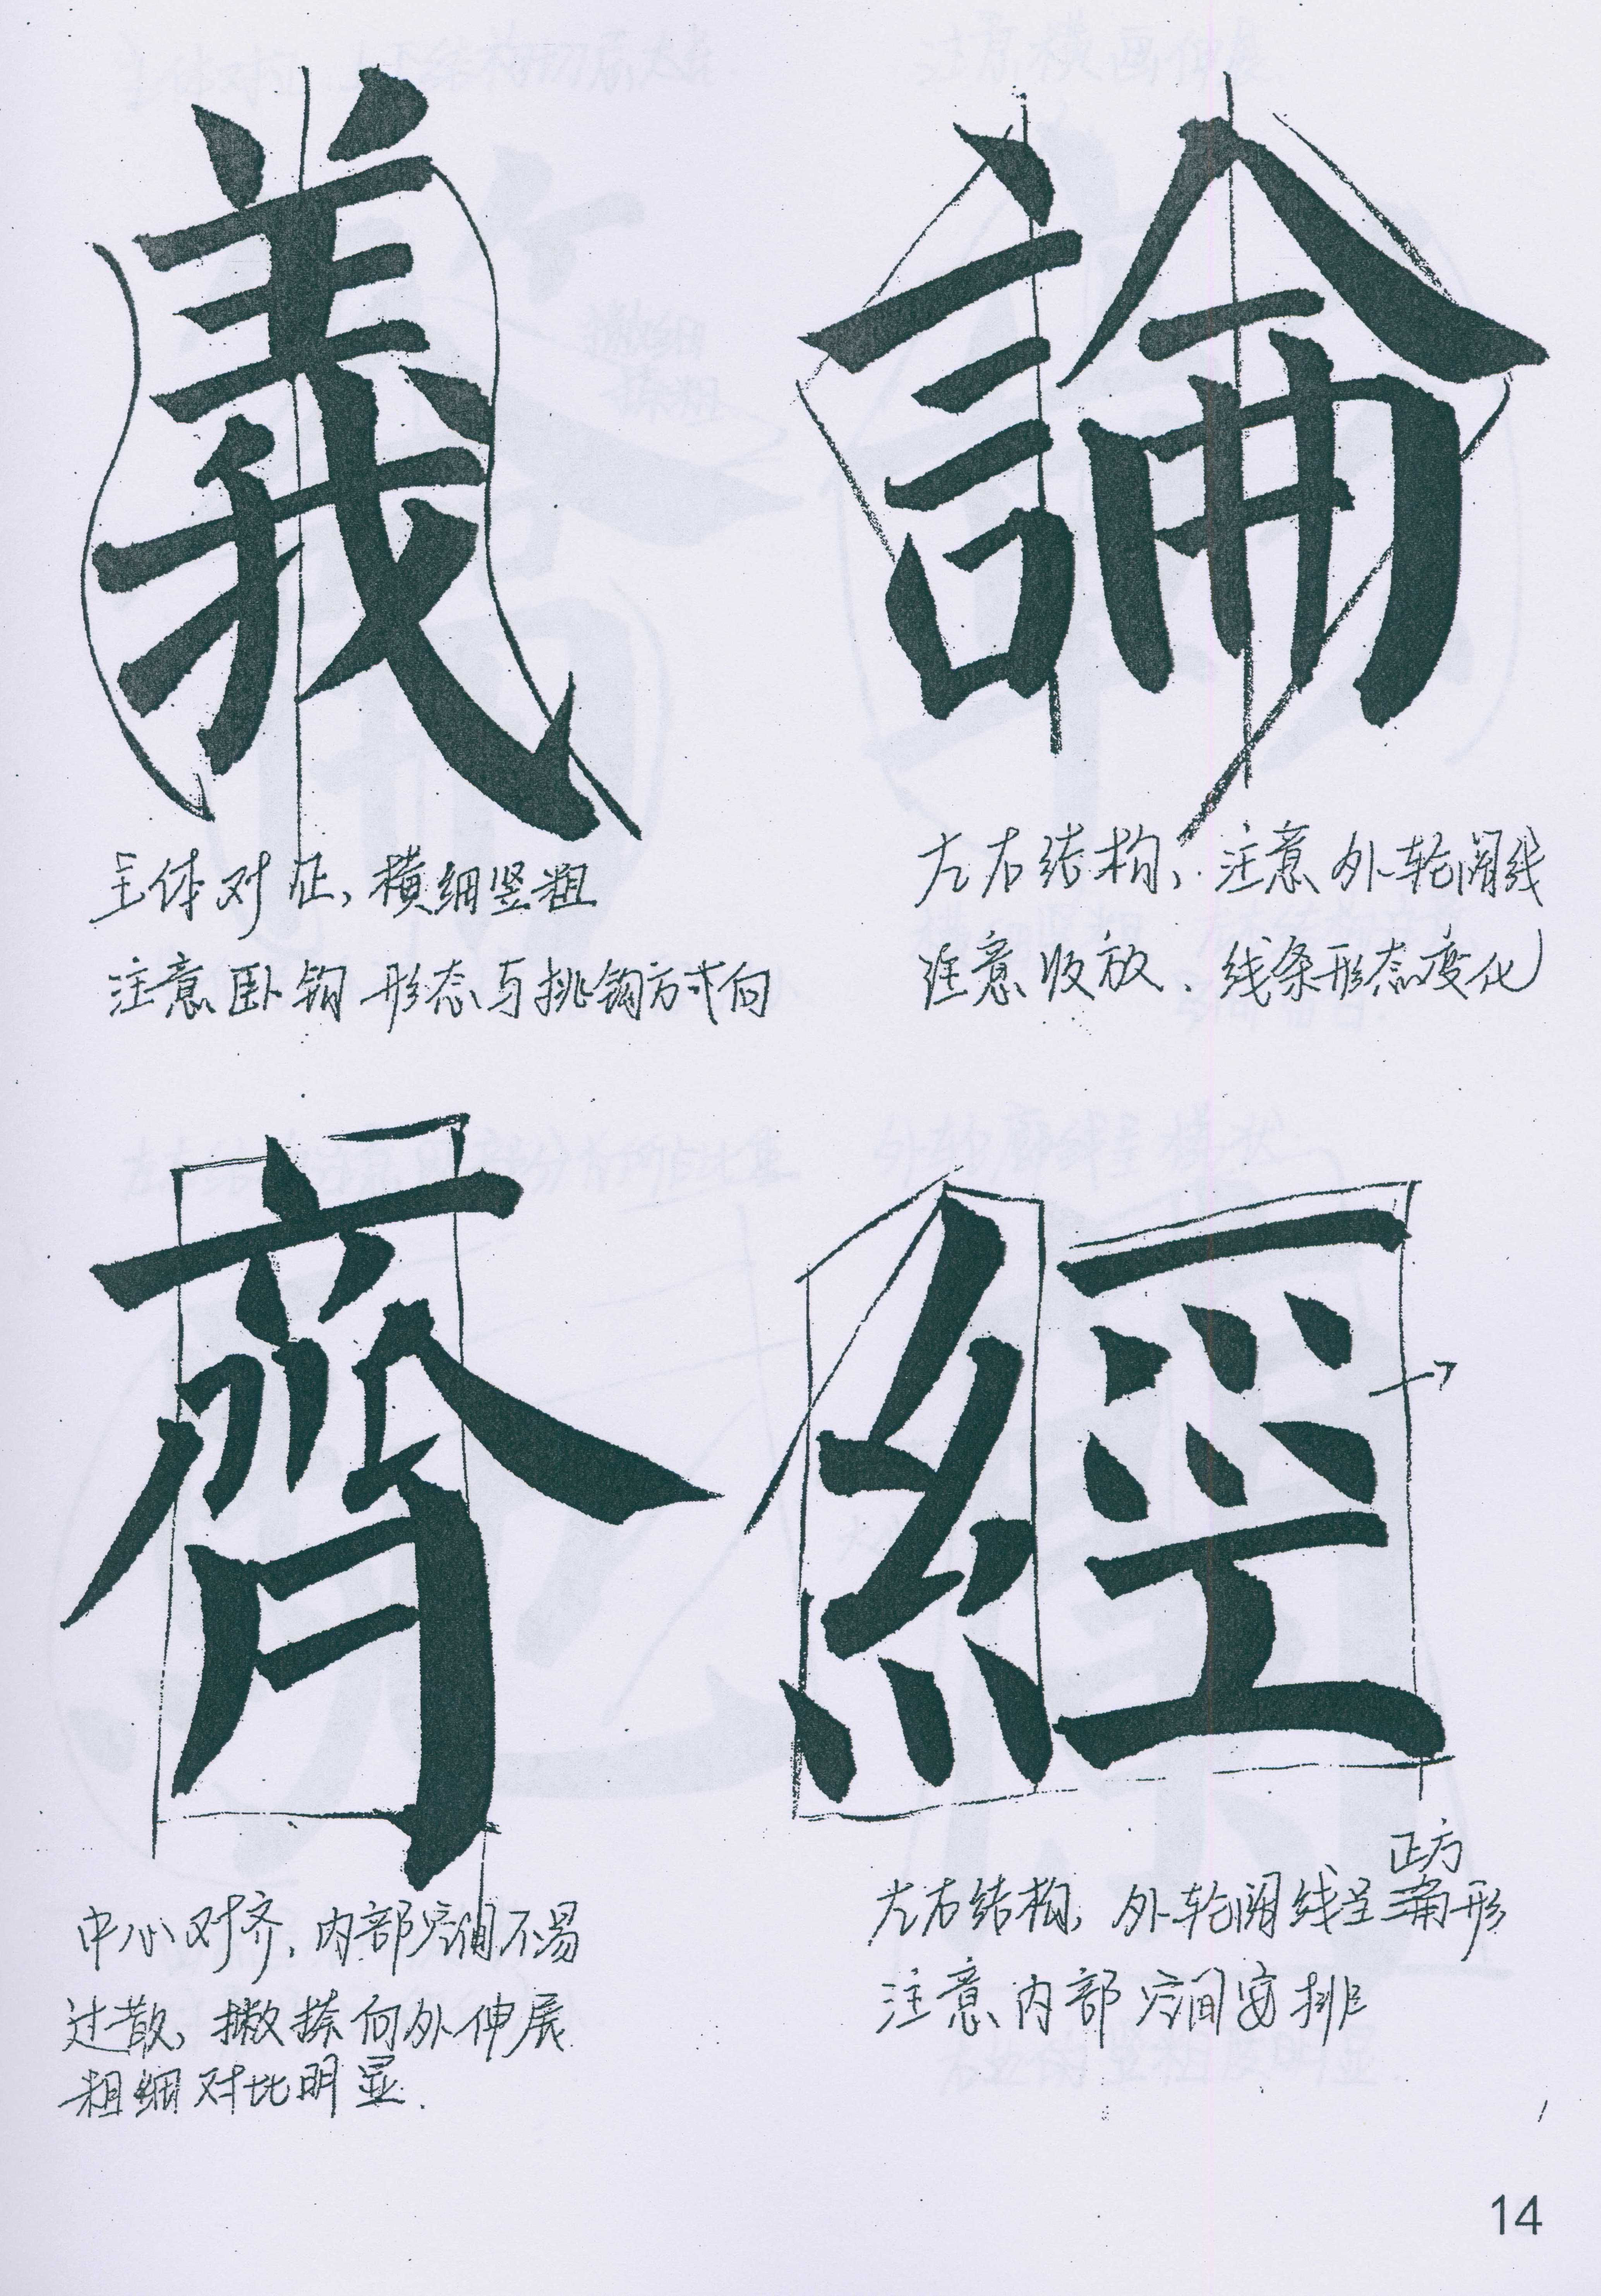 義
主体对正,横细竖粗
注意卧钩形态与挑钩方向
論
左右结构,注意外轮阔线
注意收放、线条形态变化
齊
中心对齐,内部空间不易
过散,撇捺向外伸展
粗细对比明显.
經
正方
左右结构,外轮阔线呈形
注意内部空间安排
14